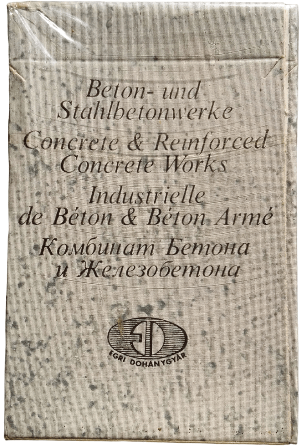 Beton- und
Stahlbetonwerke
Concrete & Reinforced
Concrete Works
Industrielle
de Béton & Béton Armé
Комбинат Бетона
и Железобетона
ED
EGRI DOHÁNYGYÁR